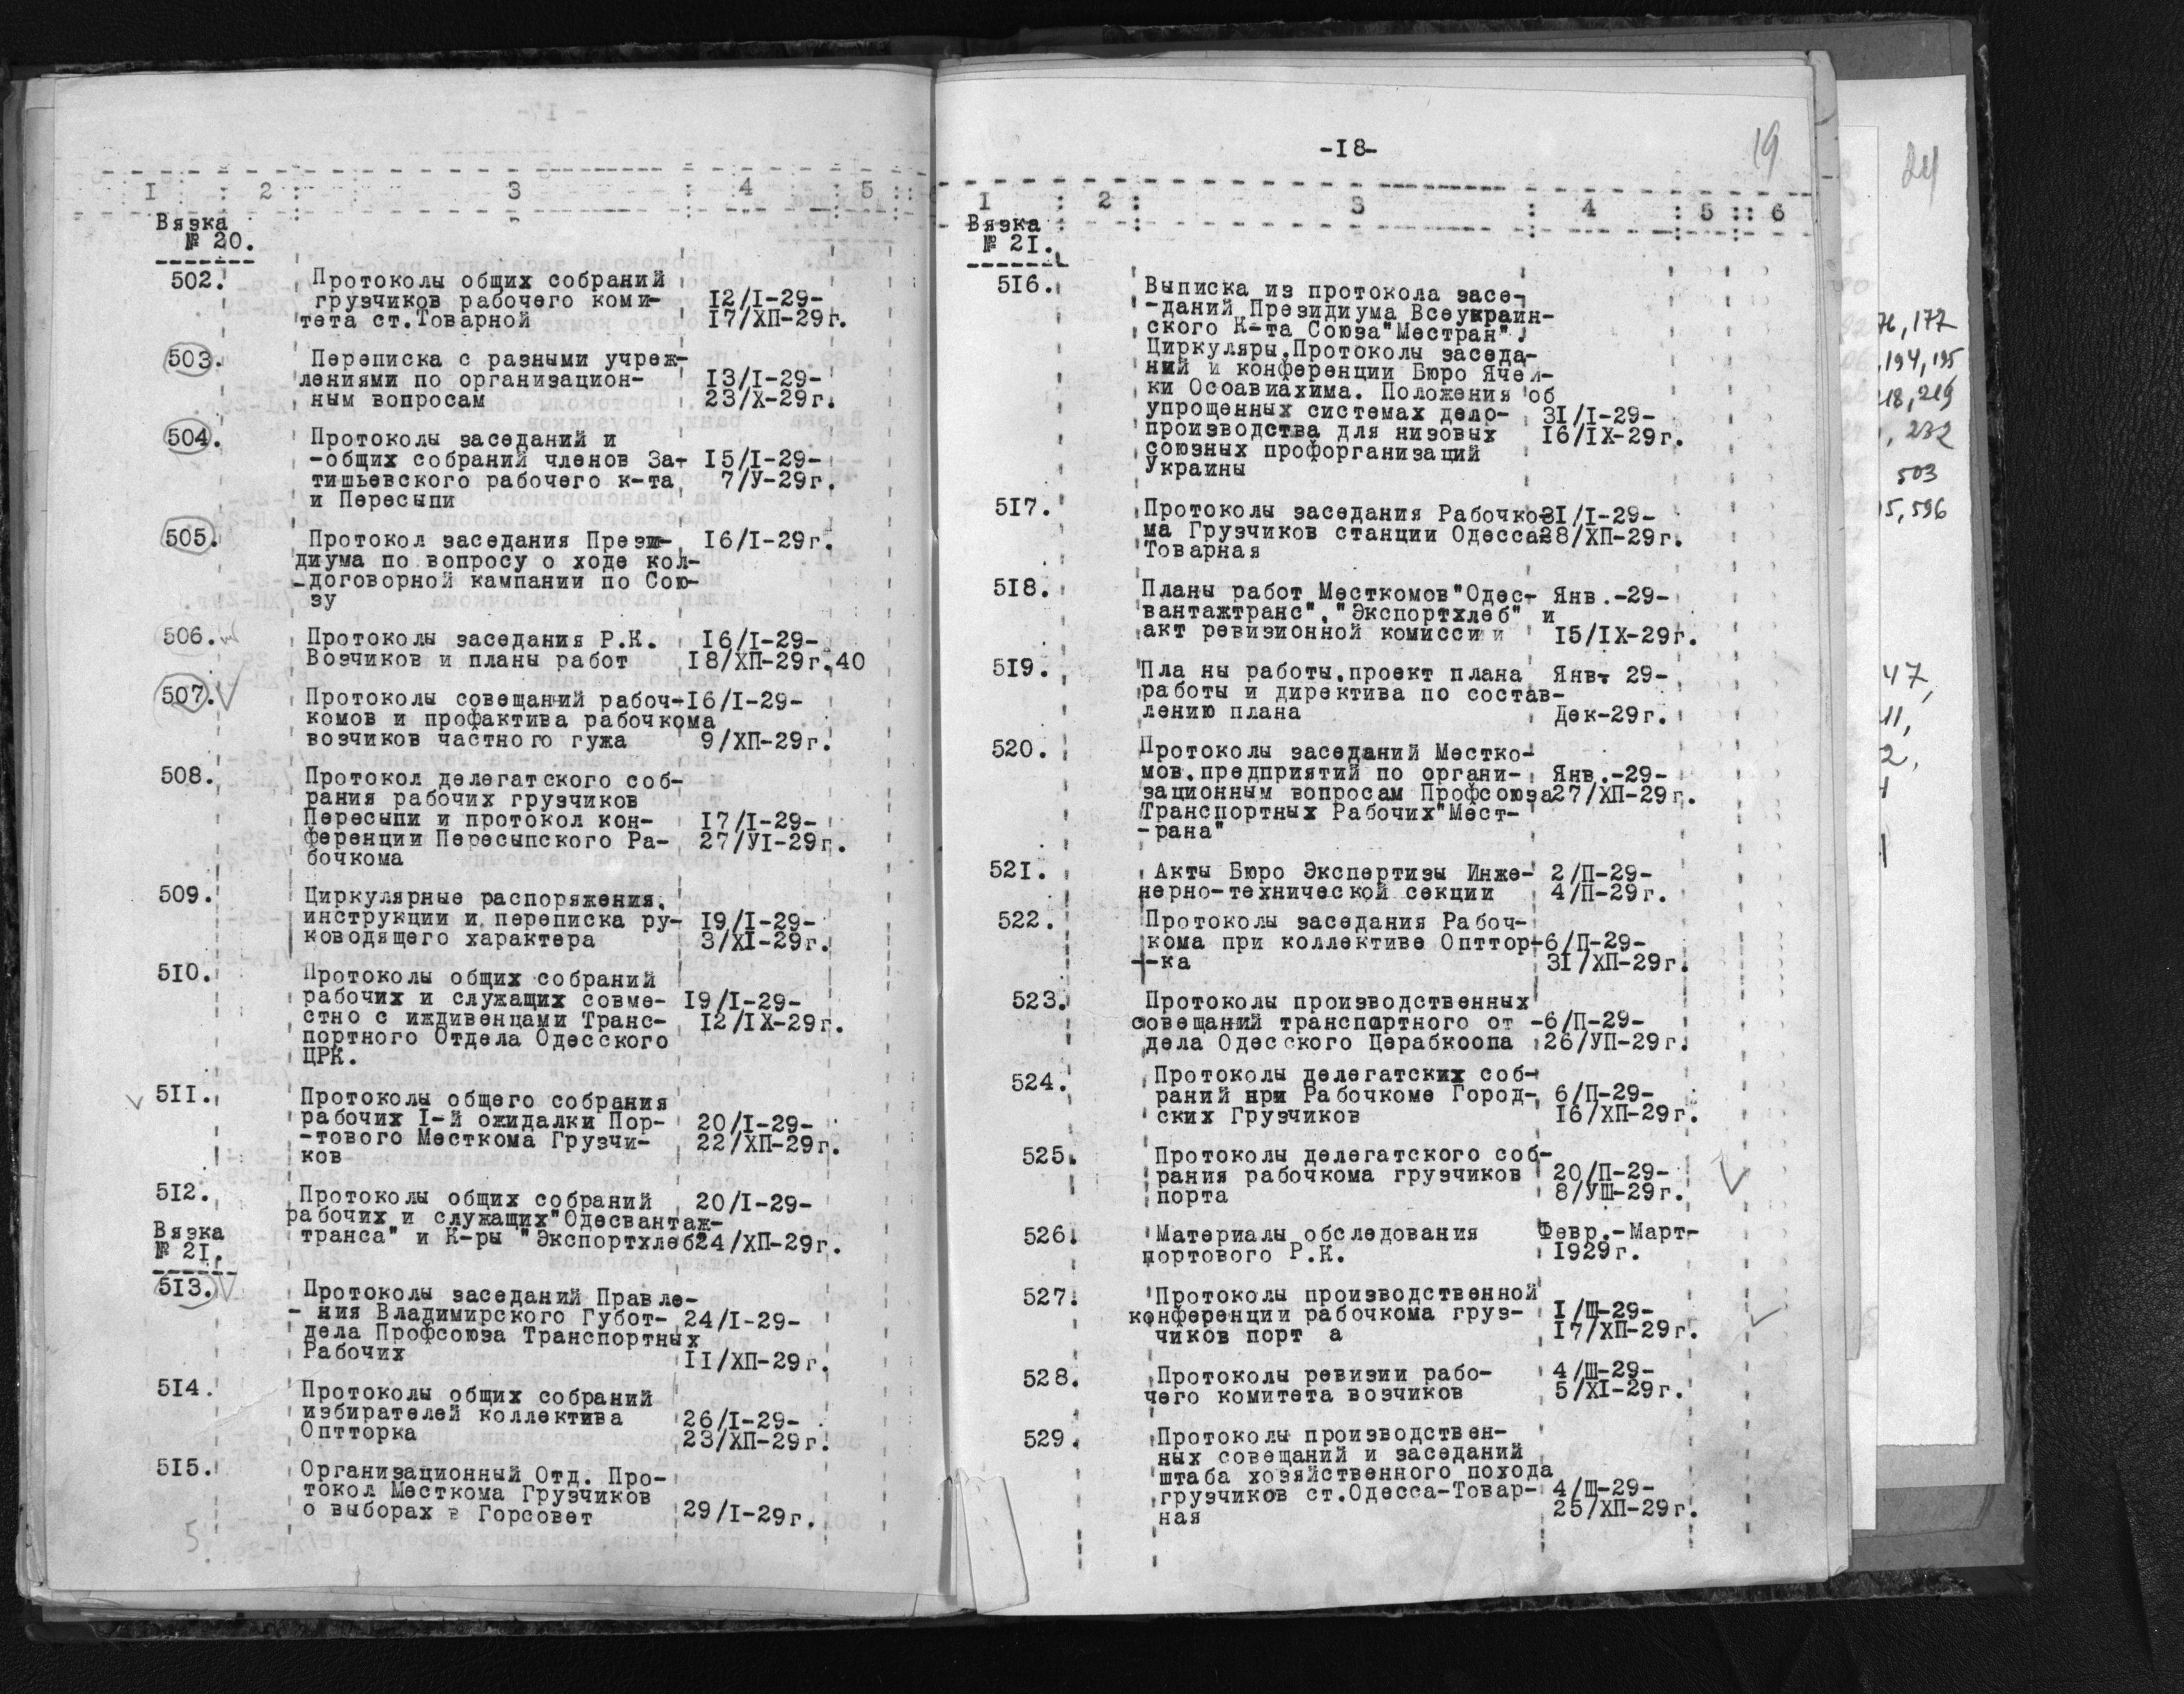 1 : 2 : 3 : 4 : 5 ::
Вязка
№ 20.
502. Протоколы общих собраний
грузчиков рабочего коми- 12/I-29-
тета ст.Товарной 17/ХП-29г.
503. Переписка с разными учреж-
лениями по организацион- 13/I-29-
ным вопросам 23/Х-29г.
504. Протоколы заседаний и
-общих собраний членов За- 15/I-29-
тишьевского рабочего к-та 7/У-29г.
и Пересыпи
505. Протокол заседания Прези- 16/I-29г.
диума по вопросу о ходе кол-
-договорной кампании по Сою-
зу
506. Протоколы заседания Р.К. 16/I-29-
Возчиков и планы работ 18/ХП-29г. 40
507. Протоколы совещаний рабоч- 16/I-29-
комов и профактива рабочкома
возчиков частного гужа 9/ХП-29г.
508. Протокол делегатского соб-
рания рабочих грузчиков
Пересыпи и протокол кон- 17/I-29-
ференции Пересыпского Ра- 27/УI-29г.
бочкома
509. Циркулярные распоряжения,
инструкции и переписка ру- 19/I-29-
ководящего характера 3/XI-29г.
510. Протоколы общих собраний
рабочих и служащих совме- 19/I-29-
стно с иждивенцами Транс- 12/IX-29г.
портного Отдела Одесского
ЦРК.
511. Протоколы общего собрания
рабочих I-й ожидалки Пор- 20/I-29-
-тового Месткома Грузчи- 22/ХП-29г.
ков
512. Протоколы общих собраний 20/I-29-
рабочих и служащих"Одесвантаж-
Вязка
транса" и К-ры "Экспортхлеб" 24/ХП-29г.
№ 21.
513. Протоколы заседаний Правле-
- ния Владимирского Губот- 24/I-29-
дела Профсоюза Транспортных
Рабочих 11/ХП-29г.
514. Протоколы общих собраний
избирателей коллектива 26/I-29-
Оптторка 23/ХП-29г.
515. Организационный Отд. Про-
токол Месткома Грузчиков
о выборах в Горсовет 29/I-29г.
5
-18-
19
1 : 2 : 3 : 4 : 5 :: 6
Вязка
№ 21.
516. Выписка из протокола засе-
-даний Президиума Всеукраин-
ского К-та Союза"Местран".
Циркуляры.Протоколы заседа-
ний и конференции Бюро Ячей-
ки Осоавиахима. Положения об
упрощенных системах дело- 31/I-29-
производства для низовых 16/IX-29г.
союзных профорганизаций
Украины
517. Протоколы заседания Рабочко- 31/I-29-
ма Грузчиков станции Одесса- 28/ХП-29г.
Товарная
518. Планы работ Месткомов"Одес- Янв.-29-
вантажтранс", "Экспортхлеб" и
акт ревизионной комиссии 15/IX-29г.
519. Пла ны работы,проект плана Янв- 29-
работы и директива по состав-
лению плана Дек-29г.
520. Протоколы заседаний Местко-
мов,предприятий по органи- Янв.-29-
зационным вопросам Профсоюза 27/ХП-29г.
Транспортных Рабочих"Мест-
-рана"
521. Акты Бюро Экспертизы Инже- 2/П-29-
нерно-технической секции 4/П-29г.
522. Протоколы заседания Рабоч-
кома при коллективе Опттор- 6/П-29-
-ка 31/ХП-29г.
523. Протоколы производственных
совещаний транспортного от - 6/П-29-
дела Одесского Церабкоопа 26/УП-29г.
524. Протоколы делегатских соб-
раний при Рабочкоме Город- 6/П-29-
ских Грузчиков 16/ХП-29г.
525. Протоколы делегатского соб-
рания рабочкома грузчиков 20/П-29-
порта 8/УШ-29г.
526. Материалы обследования Февр.-Март-
портового Р.К. 1929г.
527. Протоколы производственной
конференции рабочкома груз- 1/Ш-29-
чиков порт а 17/ХП-29г.
528. Протоколы ревизии рабо- 4/Ш-29-
чего комитета возчиков 5/XI-29г.
529. Протоколы производствен-
ных совещаний и заседаний
штаба хозяйственного похода
грузчиков ст.Одесса-Товар- 4/Ш-29-
ная 25/ХП-29г.
24
76, 177
,194, 195
218, 219
, 232
503
5, 596
47,
11,
2,